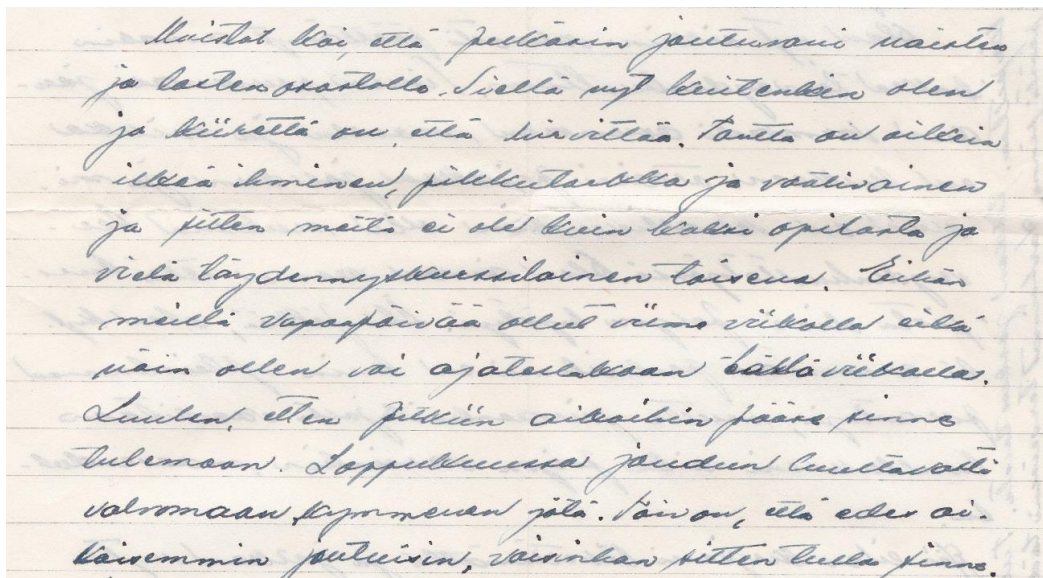 Muistat Kai, että pelkäsin joutuvani naisten
ja lasten osastolle. Siellä nyt kuitenkin olen
ja kiirettä on, että hirvittää. Täti on oikein
ilkeä ihminen, pikkutarkka ja vaativainen
ja sitten meitä ei ole kuin kaksi opilasta ja
vielä täydennyskurssilainen toisena. Eikä
meillä vapaapäivää ollut viime viikolla eikä
näin ollen voi ajatellakaan tällä viikolla.
Luulen, etten pitkiin aikoihin pääse sinne
tulemaan. Loppukuussa joudun luultavasti
valvomaan kymmenen yötä. Toivon, että edes ai-
kaisemmin joutuisin, voisinhan sitten tulla sinne.